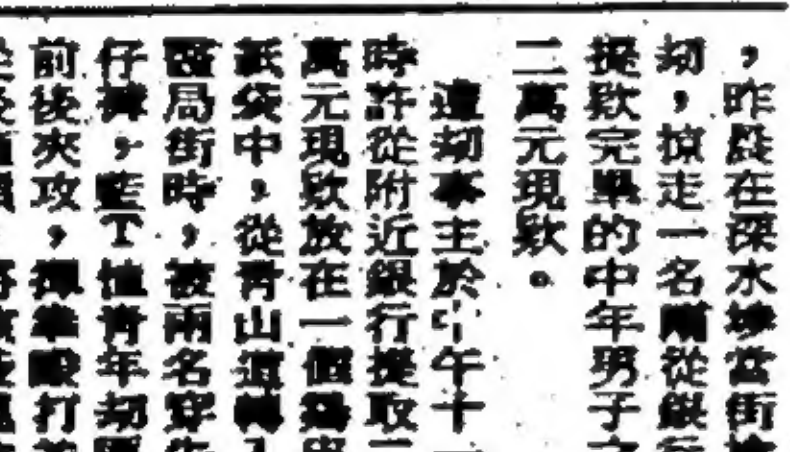 ，昨晨在深水埗當街
劫，掠走一名剛從銀行
提款完畢的中年男子之
二萬元現欵。
遭劫事主於中午十一
時許從附近銀行提取二
萬元現欵放在一個
紙袋中，從青山道轉入
醫局街時，被兩名穿牛
仔褲，藍T恤青年劫匪
前後夾攻，揮拳毆打